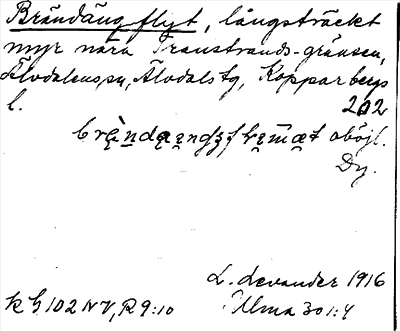 Brändängflyt, långsträckt
myr nära Transtrands-gränsen,
Älvdalens sn, Älvdals tg, Kopparbergs
l. 202
oböjl.
Dy.
L. Levander 1916
k bl 102 NV, R 9:10 Ulma 301:4